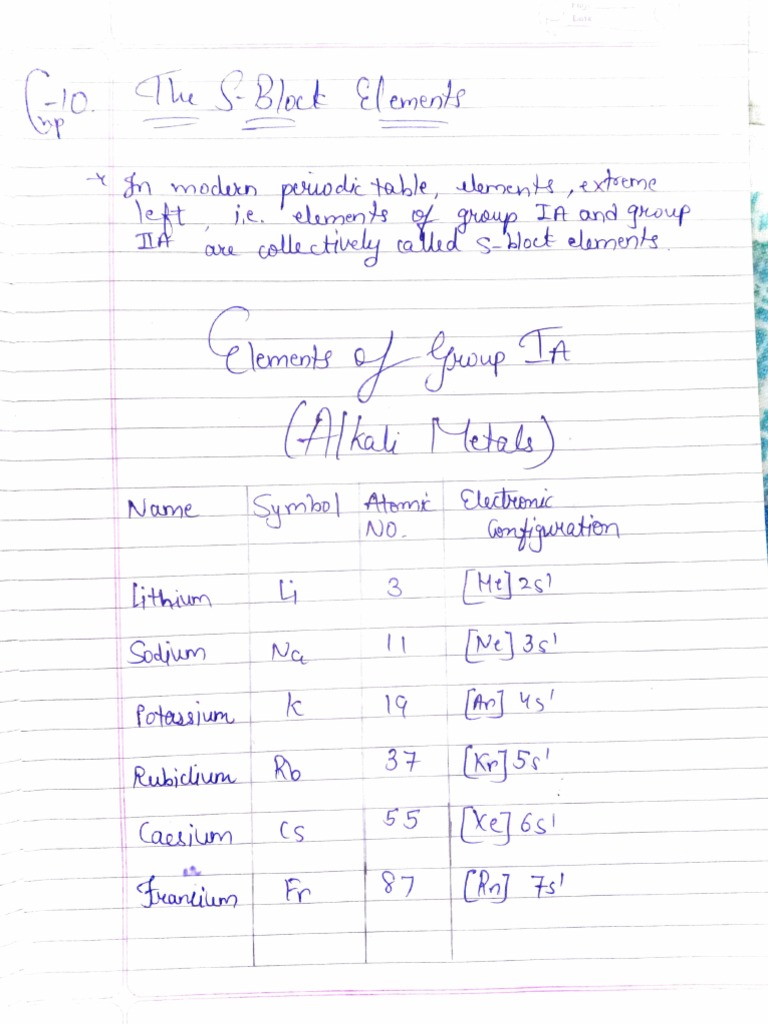 Chp-10. The S-Block Elements
* In modern periodic table, elements, extreme
left, i.e. elements of group IA and group
IIA are collectively called S-block elements.
Elements of Group IA
(Alkali Metals)
Name Symbol Atomic No. Electronic Configuration
Lithium Li 3 [He] 2s¹
Sodium Na 11 [Ne] 3s¹
Potassium K 19 [Ar] 4s¹
Rubidium Rb 37 [Kr] 5s¹
Caesium Cs 55 [Xe] 6s¹
Francium Fr 87 [Rn] 7s¹